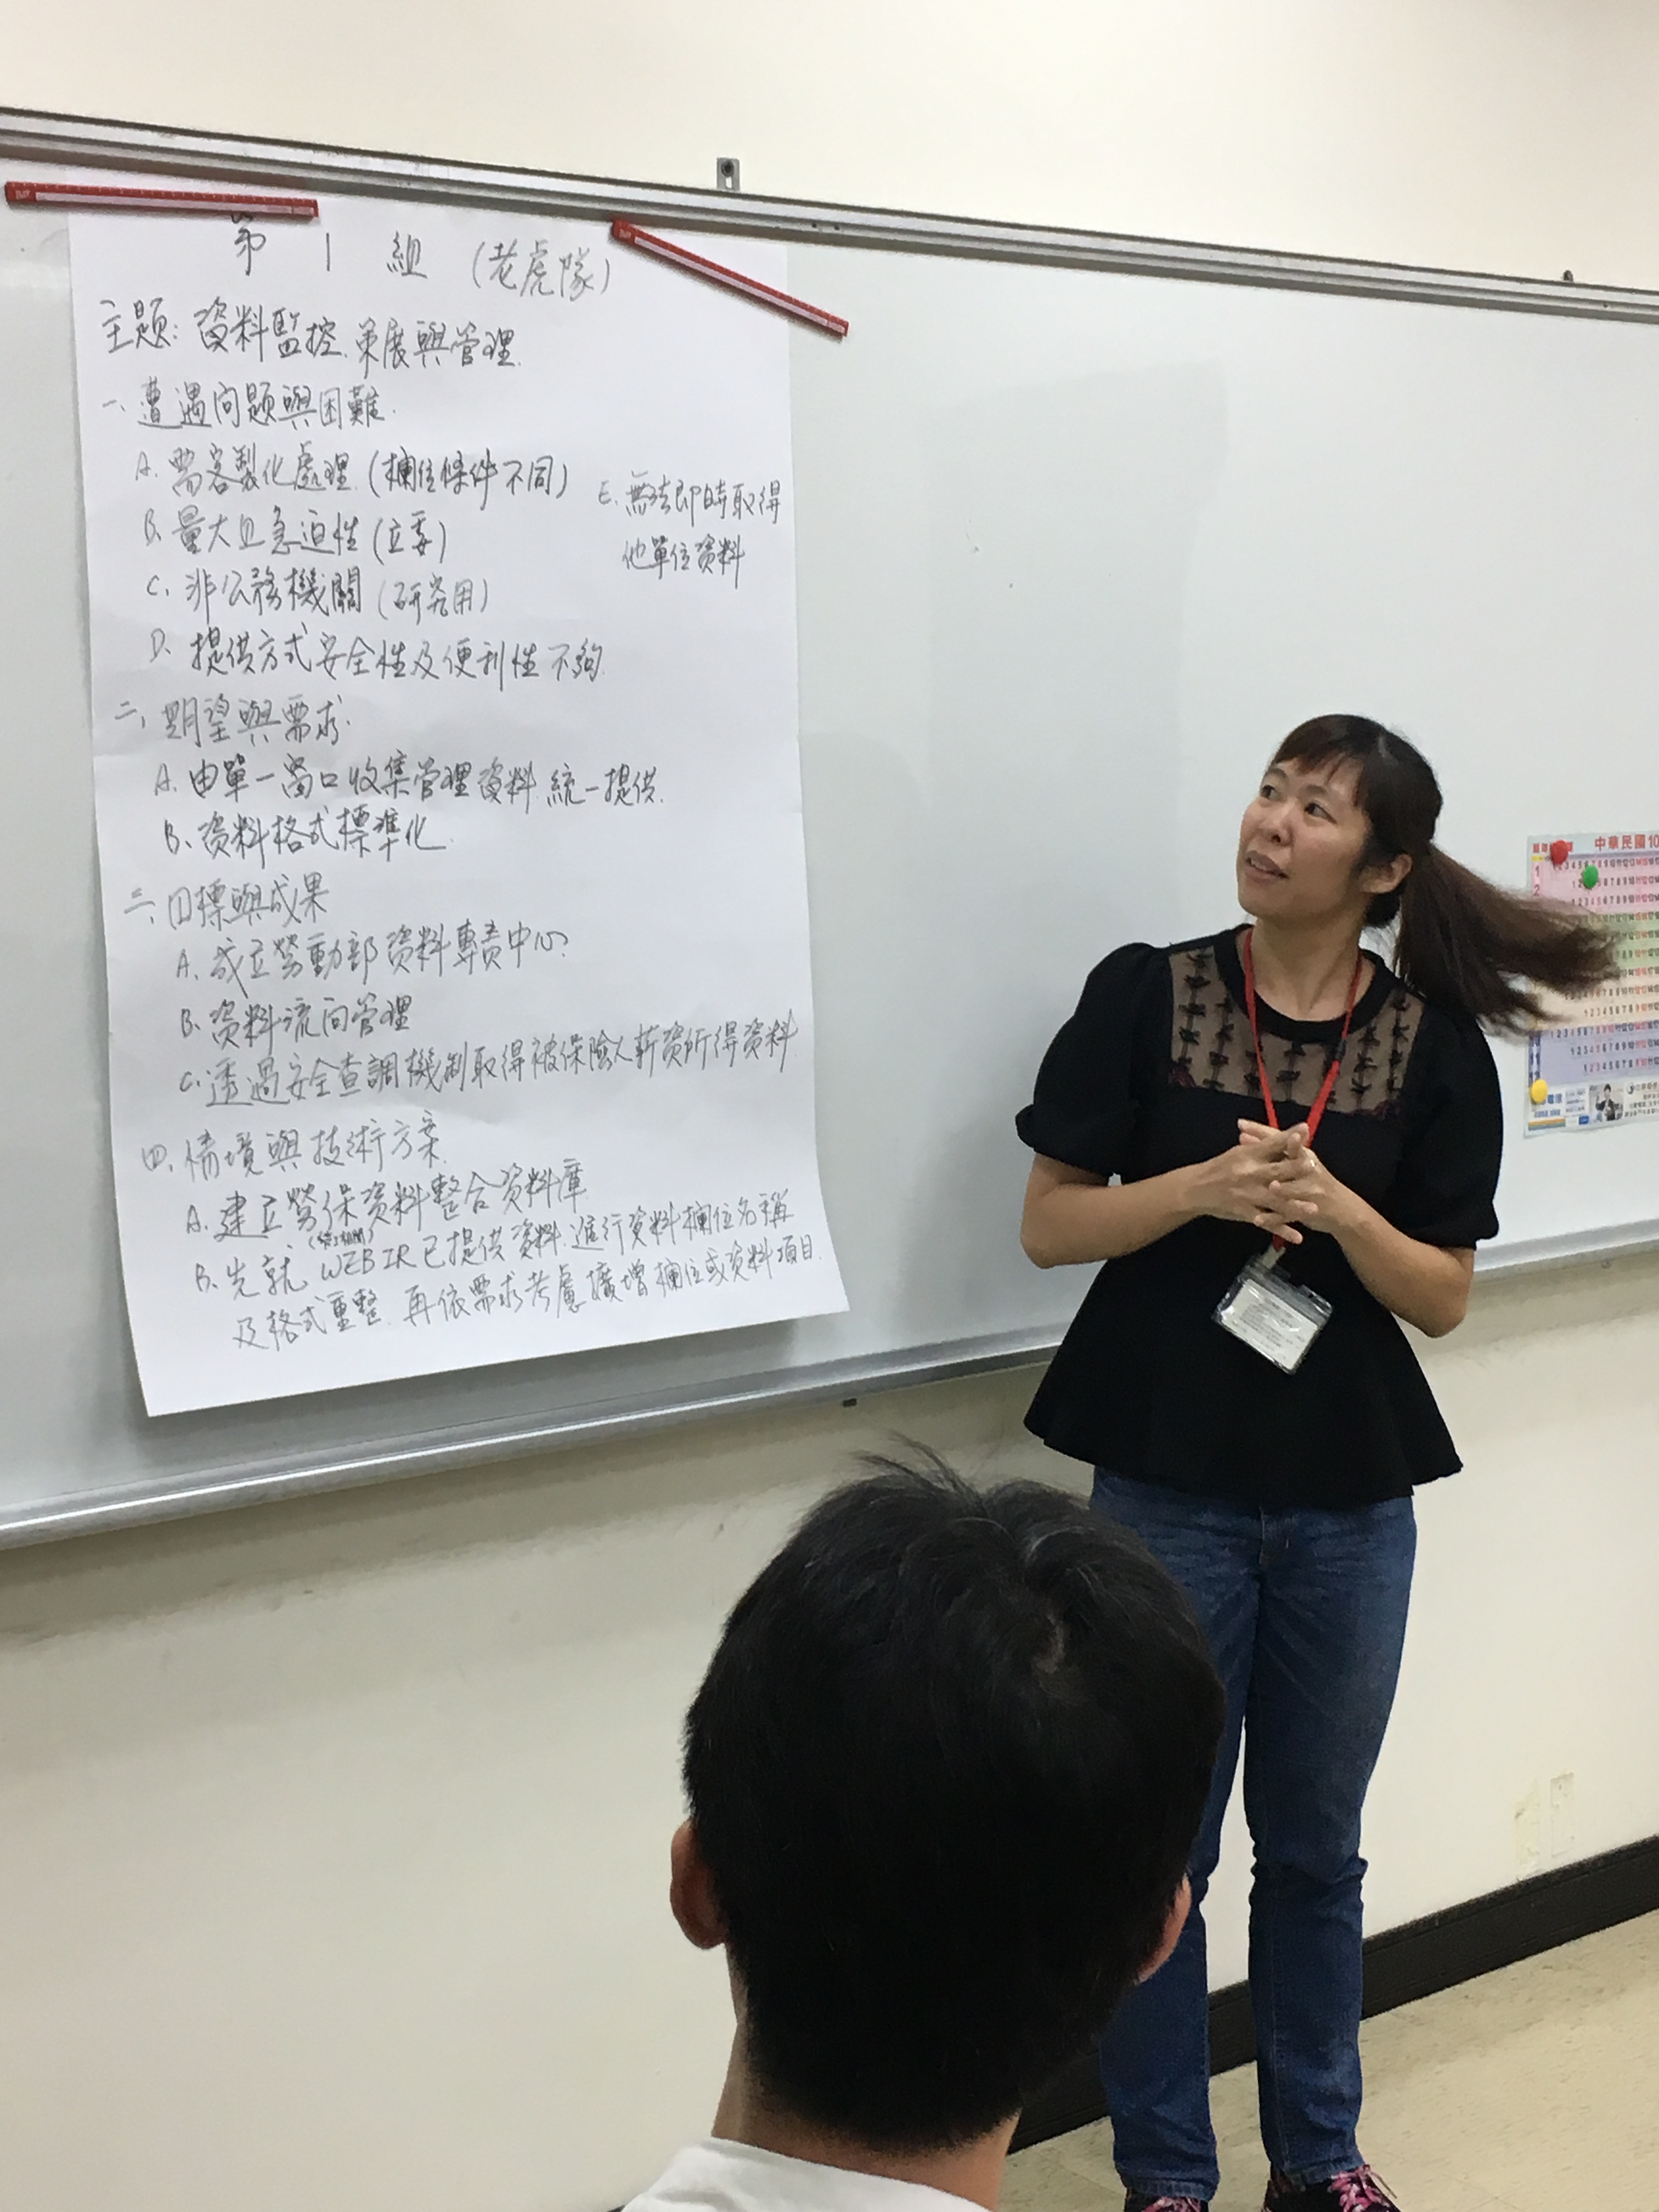 第 1 組 (老虎隊)
主題: 資料監控、策展與管理.
一、遭遇問題與困難.
A. 需客製化處理 (欄位條件不同)
B. 量大且急迫性 (立委)
C. 非公務機關 (研究用)
D. 提供方式安全性及便利性不夠
E. 無法即時取得
他單位資料
二、期望與需求.
A. 由單一窗口收集管理資料統一提供.
B. 資料格式標準化
三、目標與成果
A. 成立勞動部資料專責中心?
B. 資料流向管理
C. 透過安全查調機制取得被保險人薪資所得資料
四、情境與技術方案
A. 建立勞保資料整合資料庫
B. 先就 WEBIR已提供資料.進行資料欄位名稱
及格式重整.再依需求考慮擴增欄位或資料項目.
中華民國10